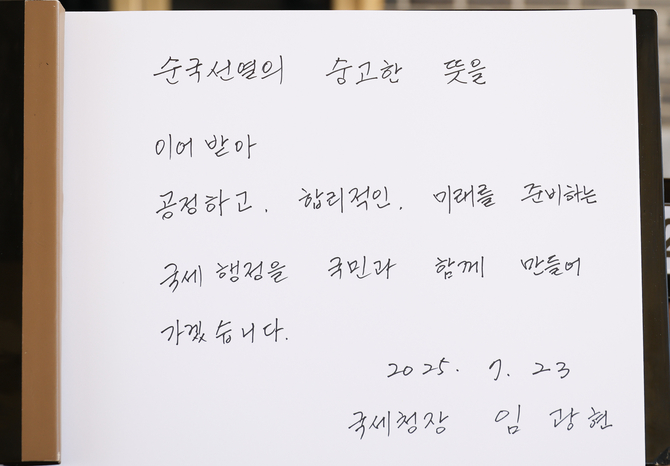 순국선열의 숭고한 뜻을
이어 받아
공정하고, 합리적인, 미래를 준비하는
국세 행정을 국민과 함께 만들어
가겠습니다.
2025. 7. 23
국세청장 임 광 현